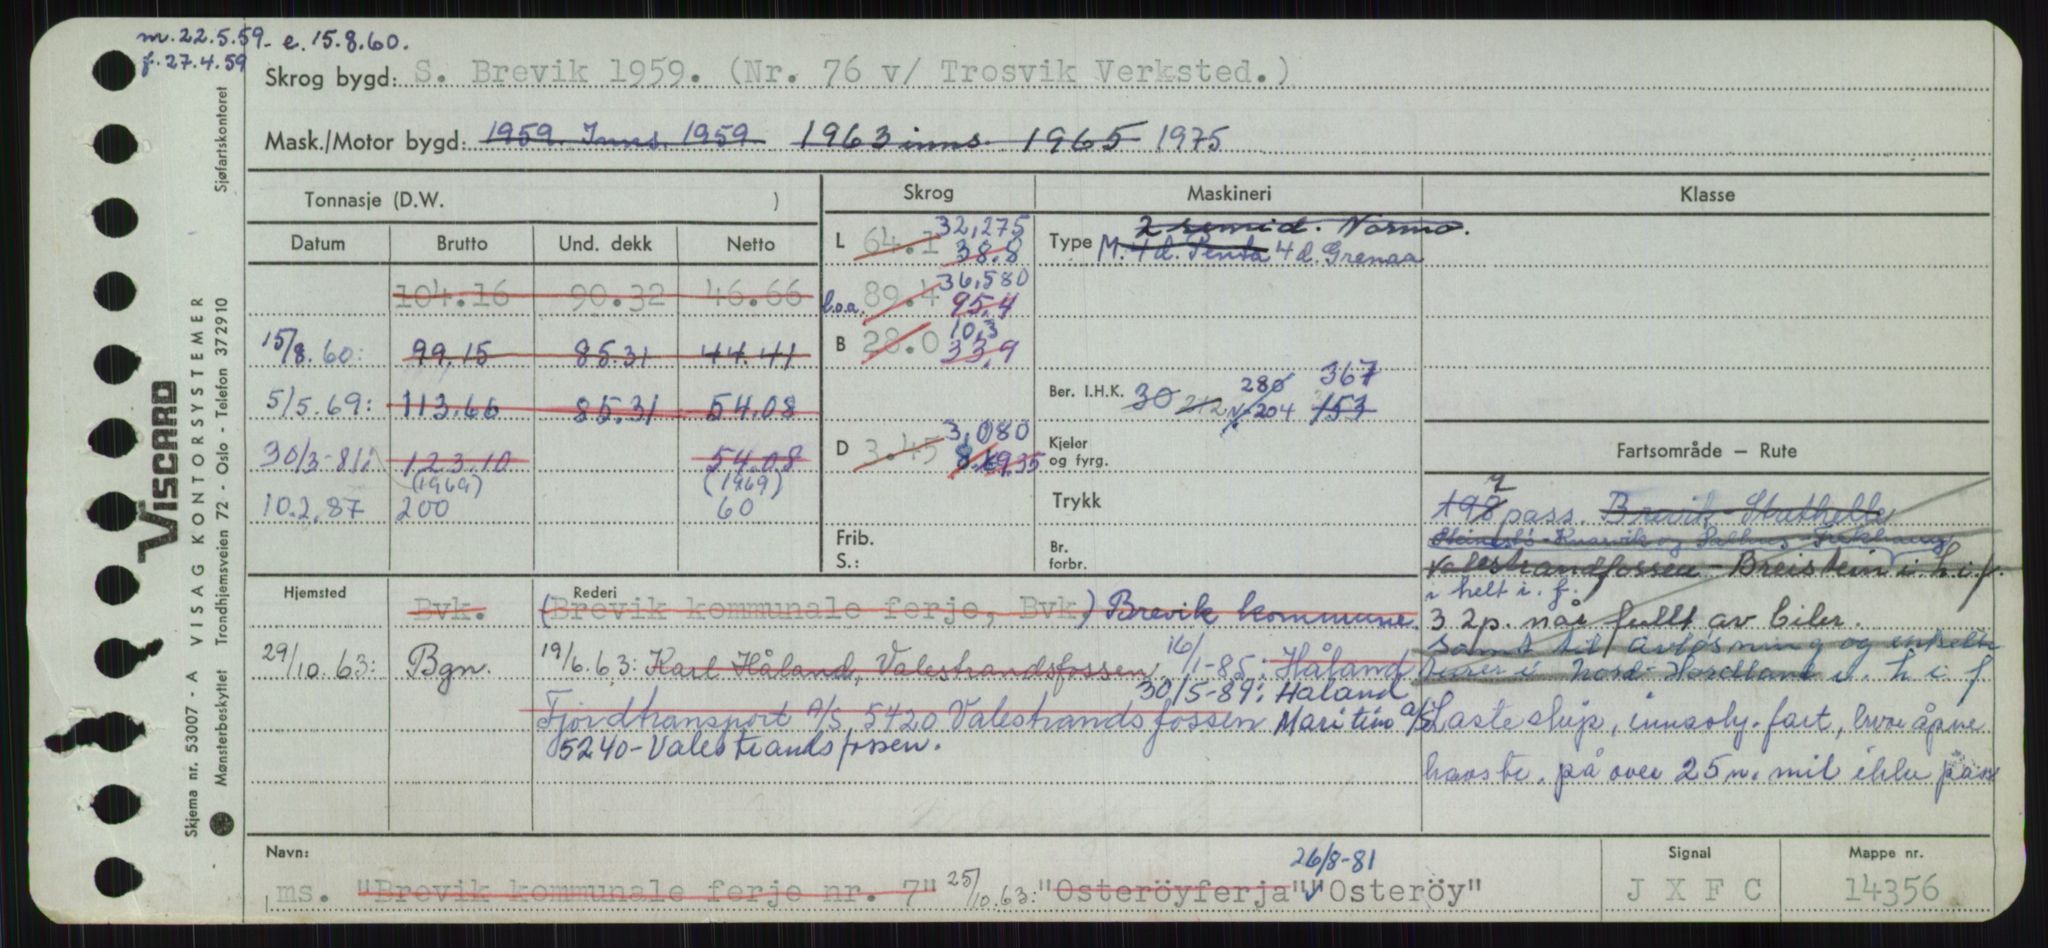 m. 22.5.59. e. 15.8.60.
f. 27.4.59
Skrog bygd: S. Brevik 1959. (Nr. 76 v/ Trosvik Verksted.)
Mask./Motor bygd: 1959 Inns. 1959 1963 inns. 1965 1975
Tonnasje (D.W. )
Skrog
Maskineri
Klasse
Datum Brutto Und. dekk Netto
104.16 90.32 46.66
15/8.60: 99.15 85.31 44.41
5/5.69: 113.66 85.31 54.08
30/3-81: 123.10 54.08
(1969) (1969)
10.2.87 200 60
L 64.1 32,275
38.8
b.o.a. 89.4 36,580
95.4
B 28.0 10,3
33,9
D 3.45 3,080
9.35
Frib.
S.:
Type 2 Normo.
M. 4 d. Penta 4 d. Grenaa
Ber. I.H.K. 30 212 N-204 280 153 367
Kjeler
og fyrg.
Trykk
Br.
forbr.
Fartsområde – Rute
pass. Brevik-Stathelle
Steinestø-Knarvik og Salhus-Frekhaug
Valestrandfossen - Breistein i h.i.f.
i helt i. f.
32p. når fullt av biler.
samt til avløsning og enkelte
turer i Nord-Hordland i. h i f
Lasteskip, innsky. fart, hvor åpne
havstr. på over 25 n. mil ikke pass
Hjemsted
Rederi
Bvk. (Brevik kommunale ferje, Bvk) Brevik kommune.
29/10.63: Bgn. 19/6.63: Karl Håland, Valestrandsfossen 16/1-85: Håland
Fjordtransport A/S, 5420 Valestrandsfossen 30/5-89: Håland
Maritim a/s
5240-Valestrandsfossen.
Navn:
ms. "Brevik kommunale ferje nr. 7" 25/10.63: "Osteröyferja" 26/8-81 "Osteröy"
Signal
J X F C
Mappe nr.
14356
Sjøfartskontoret
VISCARD
VISAG KONTORSYSTEMER
Trondhjemsveien 72 - Oslo - Telefon 372910
Skjema nr. 53007 - A
Mønsterbeskyttet